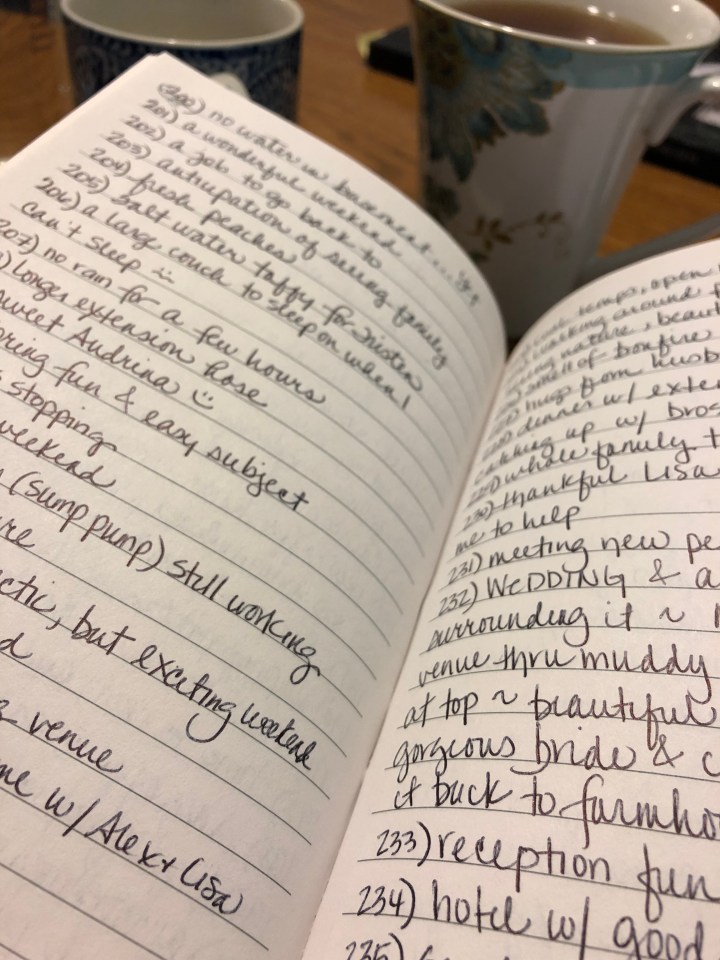 200) no water in basement...
201) a wonderful weekend
202) a job to go back to
203) anticipation of seeing family
204) fresh peaches
205) salt water taffy for
206) a large couch to sleep on when I
can't sleep
207) no rain for a few hours
) longer extension hose
sweet Audrina
ring fun & easy subject
stopping
weekend
(sump pump) still working
re
ctic, but exciting weekend
d
& venue
me w/ Alex + Lisa
temps, open
working around
nature, beaut
smell of bonfire
hugs from husb
dinner w/ exte
catching up w/ bros
whole family t
230) thankful Lisa
me to help
231) meeting new pe
232) WEDDING & a
surrounding it ~
venue thru muddy
at top ~ beautiful
gorgeous bride & c
it back to farmho
233) reception fun
234) hotel w/ good
235)